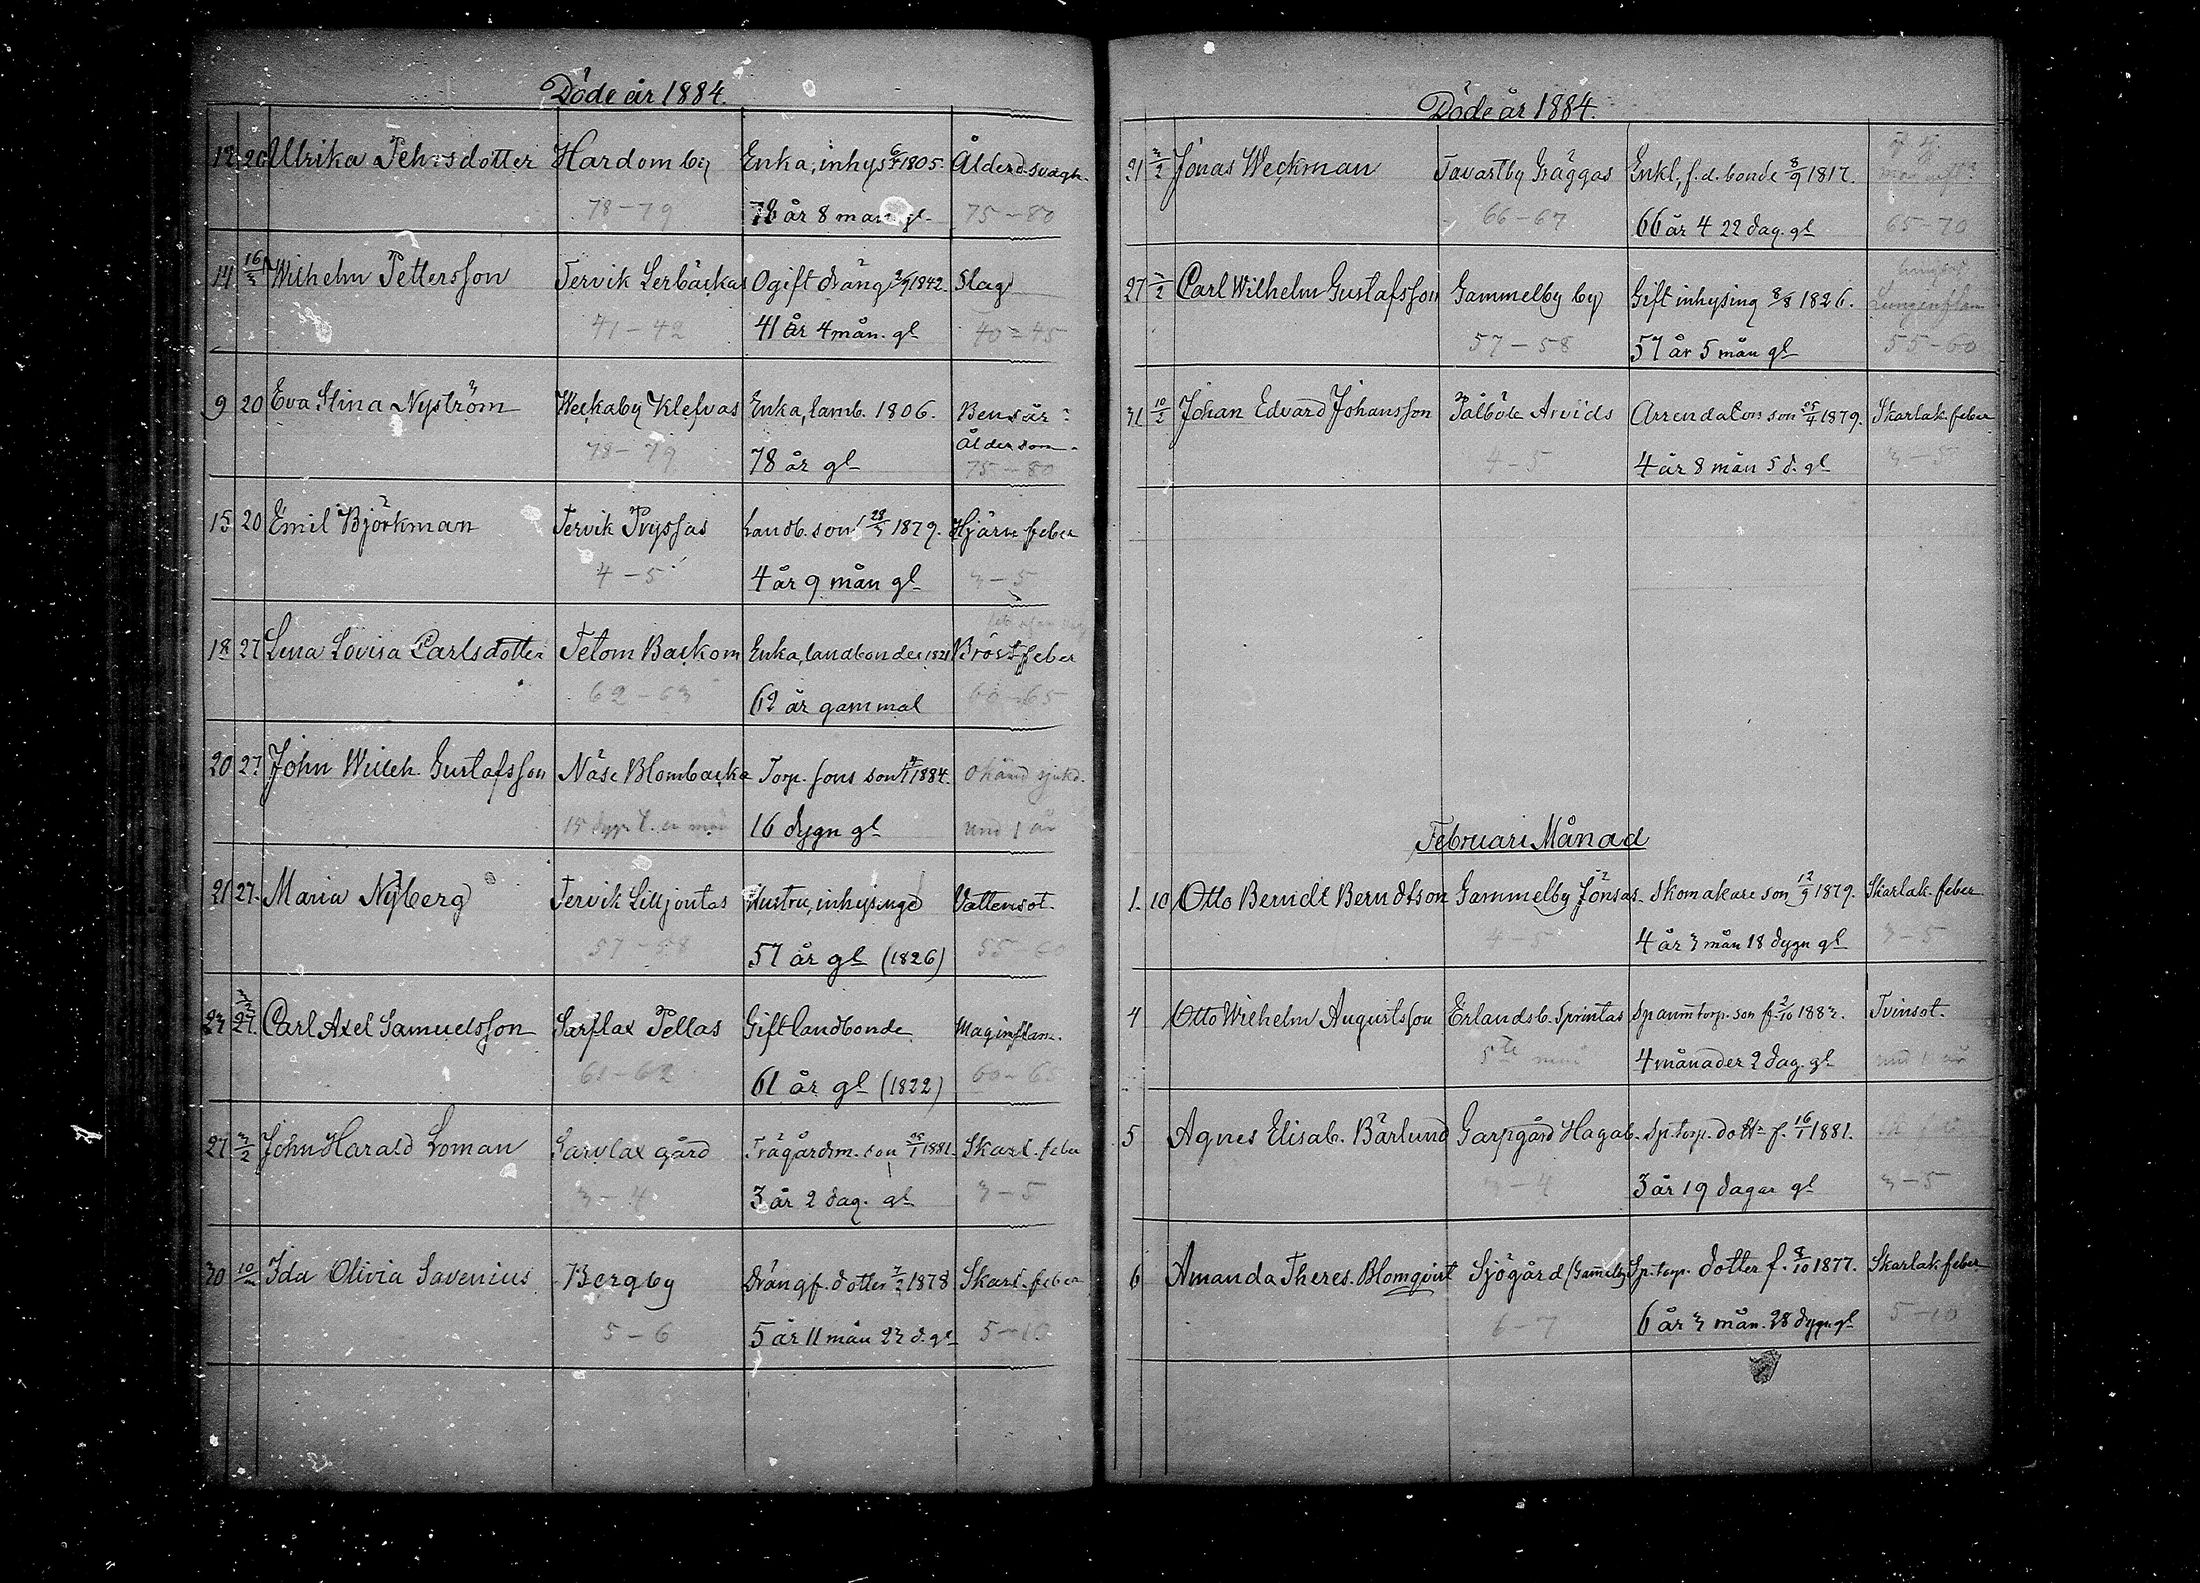 Döde år 1884.
12 20 Ulrika Pehrsdotter Hardom by Enka, inhys 1805. Ålderd. svagh.
78-79 78 år 8 mån gl 75-80
14 16 Wilhelm Pettersson Tervik Lerbäckas Ogift dräng 1842. Slag
41-42 41 år 4 mån. gl 40-45
9 20 Eva Stina Nyström Weckaby Klefvas Enka, lamb. 1806. Bensår
Ålderdom
78-79 78 år gl 75-80
15 20 Emil Björkman Tervik Pryssas Landb. son 23/3 1879. Hjärnfeber
4-5 4 år 9 mån gl 3-5
18 27 Lena Lovisa Carlsdotter Tetom Backom Enka, landbondes 1821 Bröstfeber
62-63 62 år gammal 60-65
20 27 John Wilh. Gustafsson Näse Blombacka Torp. sons son 1884. okänd sjukd.
15 dygn 16 dygn gl und 1 år
21 27. Maria Nyberg Tervik Lilljontas Hustru, inhysinge Vattensot.
57-58 57 år gl (1826) 55-60
23 27. Carl Axel Samuelsson Sarflax Pellas Gift landbonde Maginflam.
61-62 61 år gl (1822) 60-65
27 3/2 John Harald Loman Sarvlax gård Trägårdsm. son 25/1 1881 Skarl. feber
3-4 3 år 2 dag. gl 3-5
30 10 Ida Olivia Savenius Bergby Drängs. dotter 7/2 1878 Skarl. feber
5-6 5 år 11 mån 23 d. gl 5-10
Döde år 1884.
21 3/2 Jonas Weckman Tavastby Gräggas Enkl., f.d. bonde 8/9 1817.
66-67 66 år 4 22 dag. gl 65-70
27 3/2 Carl Wilhelm Gustafsson Gammelby by Gift inhysing 8/8 1826. Lunginflam
57-58 57 år 5 mån gl 55-60
31 10/2 Johan Edvard Johansson Pålböle Arvids Arrendators son 25/4 1879. Skarlak. feber
4-5 4 år 8 mån 5 d. gl 3-5
Februari Månad
1. 10 Otto Berndt Berndtson Gammelby Jönsas Skomakare son 12/9 1879. Skarlak. feber
4-5 4 år 3 mån 18 dygn gl 3-5
4 Otto Wilhelm Augustsson Erlandsb. Sprintas Spanm torp. son f. 2/10 1883. Tvinsot.
5te mån 4 månader 2 dag. gl und 1 år
5 Agnes Elisab. Bärlund Garpgård Hagab. Sp. torp. dottr f. 16/1 1881.
3-4 3 år 19 dagar gl 3-5
6 Amanda Theres. Blomqvist Sjögård (Gamelby) Sp. torp. dotter f. 8/10 1877. Skarlak. feber
6-7 6 år 3 mån. 28 dygn gl 5-10